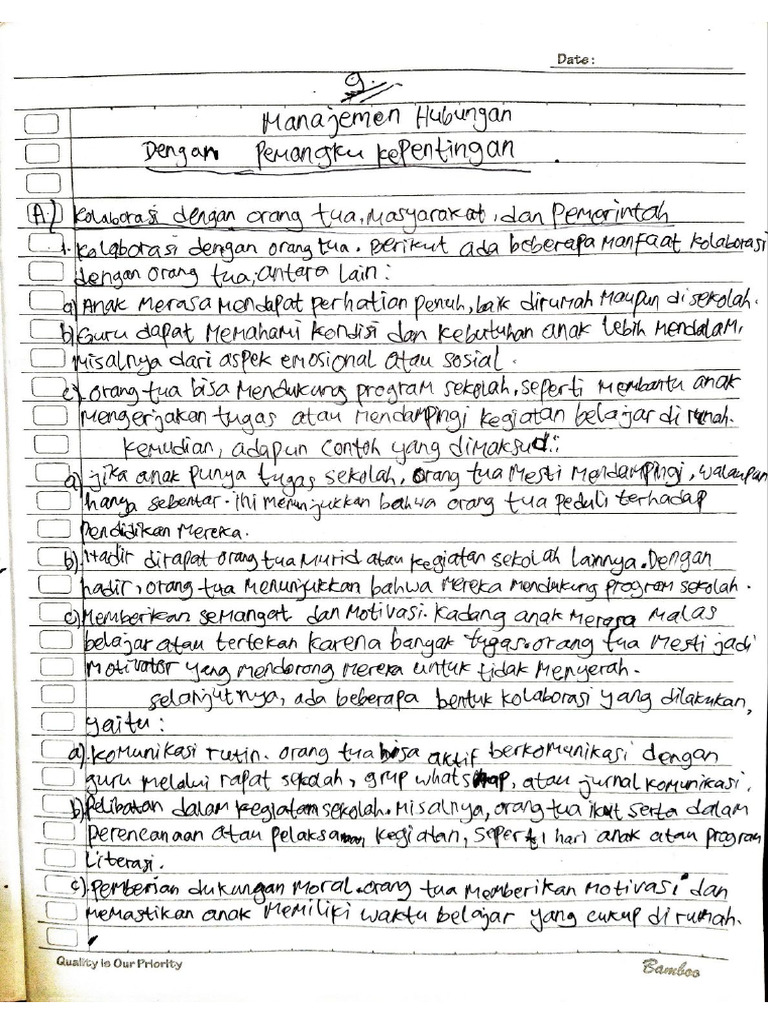 Date:
9.
Manajemen Hubungan
Dengan Pemangku Kepentingan.
A.) Kolaborasi dengan orang tua, Masyarakat, dan Pemerintah
1. Kolaborasi dengan orang tua. Berikut ada beberapa manfaat kolaborasi
dengan orang tua, antara lain:
a) Anak merasa mendapat perhatian penuh, baik dirumah maupun disekolah.
b) Guru dapat memahami kondisi dan kebutuhan anak lebih mendalam,
misalnya dari aspek emosional atau sosial.
c) orang tua bisa mendukung program sekolah, seperti membantu anak
mengerjakan tugas atau mendampingi kegiatan belajar di rumah.
kemudian, adapun contoh yang dimaksud:
a) jika anak punya tugas sekolah, orang tua mesti mendampingi, walaupun
hanya sebentar. ini menunjukkan bahwa orang tua peduli terhadap
pendidikan mereka.
b) Hadir dirapat orang tua murid atau kegiatan sekolah lainnya. Dengan
hadir, orang tua menunjukkan bahwa mereka mendukung program sekolah.
c) Memberikan semangat dan motivasi. Kadang anak merasa malas
belajar atau tertekan karena banyak tugas. orang tua mesti jadi
motivator yang mendorong mereka untuk tidak menyerah.
selanjutnya, ada beberapa bentuk kolaborasi yang dilakukan,
yaitu:
a). komunikasi rutin. orang tua bisa aktif berkomunikasi dengan
guru melalui rapat sekolah, grup whatsapp, atau jurnal komunikasi.
b) Pelibatan dalam kegiatan sekolah. misalnya, orang tua ikut serta dalam
perencanaan atau pelaksanaan kegiatan, seperti hari anak atau program
Literasi.
c). Pemberian dukungan moral. orang tua memberikan motivasi dan
memastikan anak memiliki waktu belajar yang cukup di rumah.
Quality is Our Priority
Bamboo